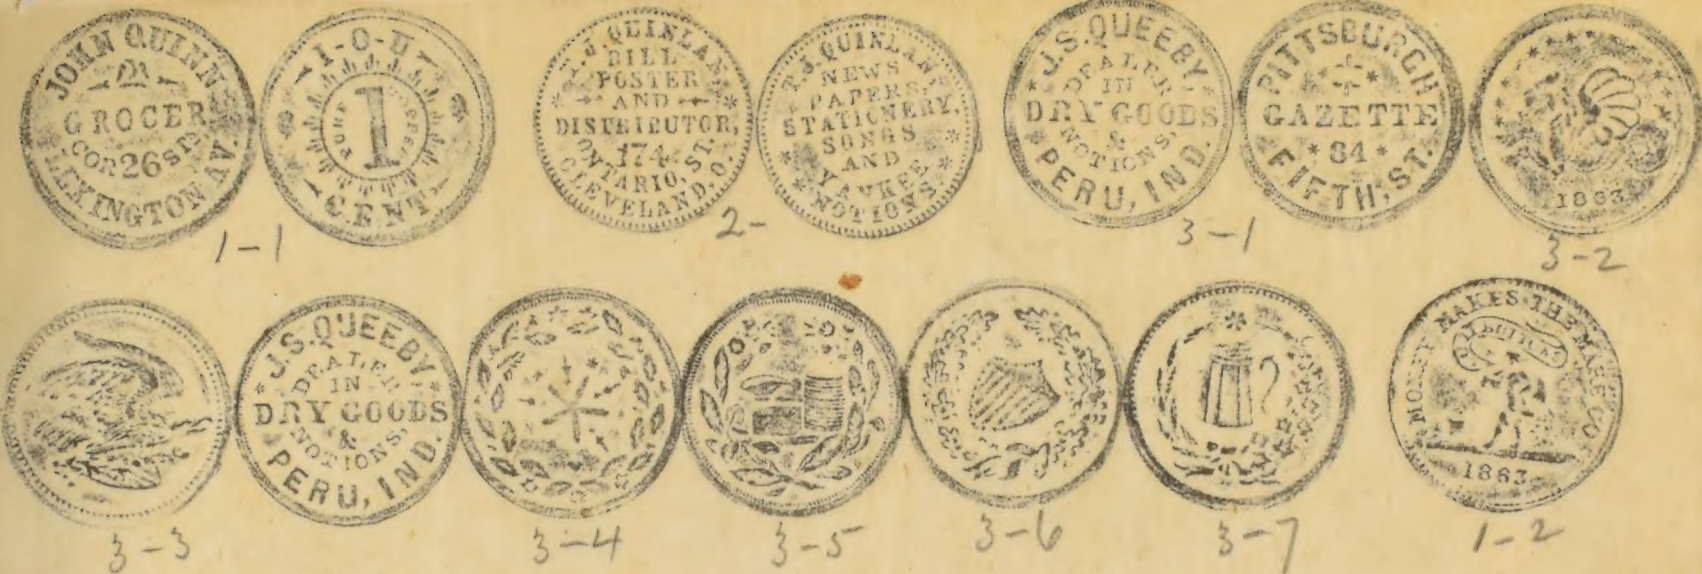 JOHN QUINN
GROCER
COR 26 ST.
LEXINGTON AV.
I-O-U
1
PURE COPPER
CENT
1-1
T.J. QUINLAN,
BILL
POSTER
AND
DISTRIBUTOR,
174
ONTARIO, ST.
CLEVELAND, O.
T.J. QUINLAN,
NEWS
PAPERS,
STATIONERY,
SONGS
AND
YANKEE
NOTIONS
2-
J.S. QUEEBY,
DEALER
IN
DRY GOODS
&
NOTIONS,
PERU, IND.
PITTSBURGH
GAZETTE
84
FIFTH, ST.
3-1
1863
3-2
3-3
J.S. QUEEBY,
DEALER
IN
DRY GOODS
&
NOTIONS,
PERU, IND.
3-4
3-5
3-6
3-7
MONEY MAKES THE MARE GO
1863
1-2